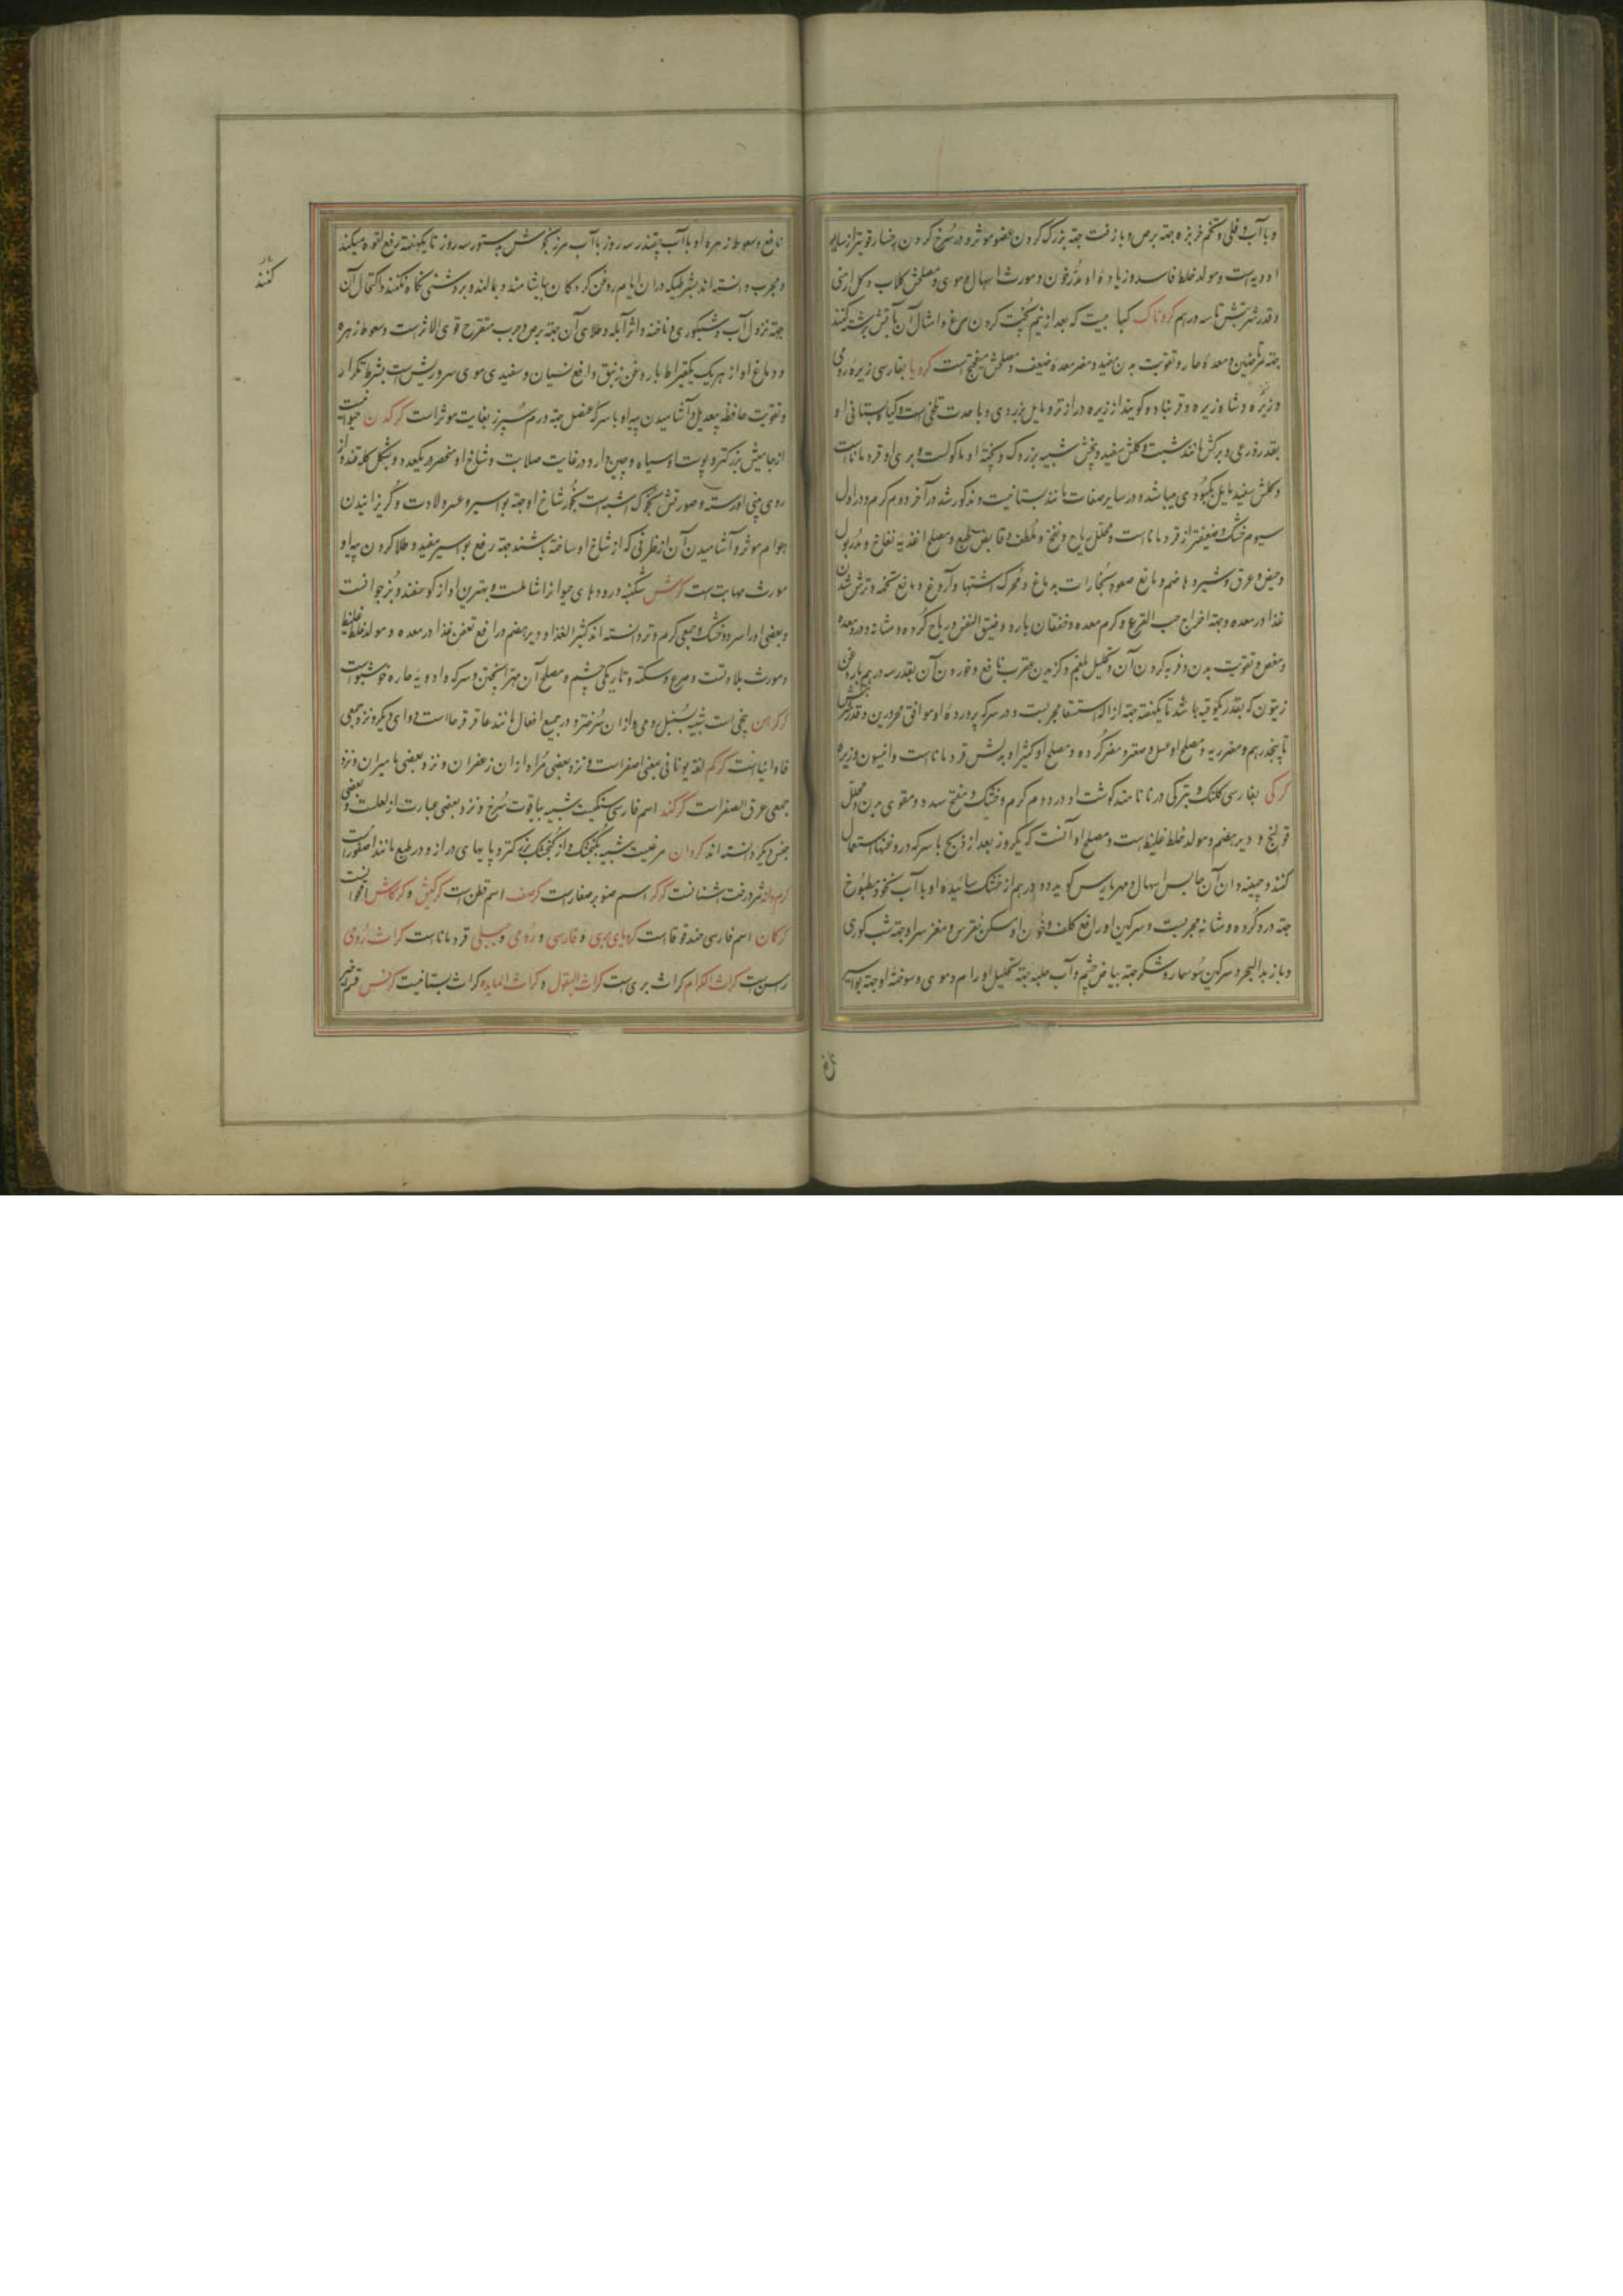 و با آب فلی و تخم خربزه جهة برص و با زفت جهة بزرگ کردن عضو موثر و در سرخ کردن رخسار قویتر از سایر
ادویه است و مولد خلط فاسد و زیاده او مدر خون و مورث اسهال دموی و مصلحش گلاب و گل ارمنی
و قدر شربتش تا سه درهم کردناک کبابیست که بعد از نیم پخت کردن مرغ و امثال آن بآتش برشته کنند
جهة مرتاضین و معده حار و تقویت بدن مفید و مضر معده ضعیف و مصلحش سکنجبین است کرویا بفارسی زیره رومی
و زیره و شاه زیره و قرنباد و گویند از زیره دراز تر و مایل بزردی و با حدت و تلخی است و گیاه بستانی او
بقدر ذرعی و برکش مانند شبت و گلش سفید و بیخش شبیه بزردک و پخته او ماکولست و بری او قردماناست
و گلش سفید مایل بکبودی میباشد و در سایر صفات مانند بستانیست و مذکور شد در آخر دویم گرم و در اول
سیوم خشک و ضعیفتر از قردماناست و محلل ریاح و نفخ و ملطف و قابض طبع و مصلح اغذیه نفاخ و مدر بول
و حیض و عرق و شیر و هاضم و مانع صعود بخارات بدماغ و محرک اشتها و آروغ و مانع تخمه و ترش شدن
غذا در معده و جهة اخراج حب القرع و کرم معده و خفقان بارد و ضیق النفس و ریاح گرده و مثانه و درد معده
و مغص و تقویت بدن و فربه کردن آن و تحلیل بلغم و گزیدن عقرب نافع و خوردن آن بقدر سه درهم با روغن
زیتون که بقدر یکوقیه باشد تا یکهفته جهة ازاله استسقا مجربست و در سرکه پرورده او موافق محرورین و قدر شربتش
تا پنجدرهم و مضر ریه و مصلح او عسل و صعتر و مضر گرده و مصلح او کثیرا و بدلش قردماناست و انیسون و زیره
کرکی بفارسی کلنک و بترکی درنا نامند گوشت او در دویم گرم و خشک و مفتح سدد و مقوی بدن و محلل
قولنج و دیر هضم و مولد خلط غلیظ است و مصلح او آنست که یکروز بعد از ذبح با سرکه در روغنها استعمال
کنند و چینه دان آن حابس اسهال و مهراریس گوید دو درهم از خشک سائیده او با آب نخود مطبوخ
جهة درد گرده و مثانه مجربست و سرگین او رافع کلف و خون او مسکن نقرس و مغز سر او جهة شب کوری
و با زبدالبحر و سرگین سوسمار و شکر جهة بیاض چشم و آب حلبه جهة تحلیل اورام و موی و سوخته او جهة بواسیر
نافع و سعوط زهره او با آب چقندر سه روز با آب مرزنجوش بدستور سه روز تا یکهفته رفع لقوه میکند
و مجرب دانسته اند بشرطیکه در ان ایام روغن گردکان بیاشامند و بمالند و بروشنی نگاه نکنند و اکتحال آن
جهة نزول آب و شبکوری و ناخنه و اثر آبله و طلای آن جهة برص و جرب متقرح قوی الاثر است و سعوط زهره
و دماغ او از هر یک یکقیراط با روغن زنبق دافع نسیان و سفیدی موی سر و ریش است بشرط تکرار
و تقویت حافظه بیعدیل و آشامیدن پیه او با سرکه عنصل جهة ورم سپرز بغایت موثر است کرکدن حیوانیست
از جامیش بزرکتر و پوست او سیاه و چین دار و در غایت صلابت و شاخ او منحصر در یکعدد و بشکل کله قند و از
روی بینی او رسته و صورتش بخوک اشبه است بخور شاخ او جهة بواسیر و عسر ولادت و گریزانیدن
هوام موثر و آشامیدن آن از ظرفی که از شاخ او ساخته باشند جهة رفع بواسیر مفید و طلا کردن پیه او
مورث مهابت است کرش شکنبه و رودهای حیوانرا شاملست و بهترین او از گوسفند و بز جوانست
و بعضی او را سرد و خشک و جمعی گرم و تر دانسته اند کثیر الغذا و دیر هضم و رافع تعفن غذا در معده و مولد خلط غلیظ
و مورث بلادت و صرع و سکته و تاریکی چشم و مصلح آن مهرا پختن و سرکه و ادویه حاره خوشبو است
کرکرهن بیخی است شبیه بسنبل رومی و از ان سرختر و در جمیع افعال مانند عاقرقرحا است دوای دیکر و نزد جمعی
فاوانیا است کرکم لغة یونانی بمعنی اصفر است و نزد بعضی مراد از ان زعفران و نزد بعضی مامیران و نزد
جمعی عرق الصفر است کرکند اسم فارسی سنگیست شبیه بیاقوت سرخ و نزد بعضی عبارت از لعلست و بعضی
جنس دیکر دانسته اند کروان مرغیست شبیه بگنجشک و از گنجشک بزرکتر و پایهای دراز و در طبع مانند عصفور است
کرم دانه ثمر درخت اشنانست کرکر اسم صنوبر صغار است کرسف اسم قطن است کرکیش و کرکاش اقحوانست
کرکان اسم فارسی حندقوقا است کرویای بری و فارسی و رومی و جبلی قردماناست کراث رومی
راسن است کراث الکرم کراث بری است کراث البقول و کراث المایده کراث بستانیست کرفس قسم
کنند